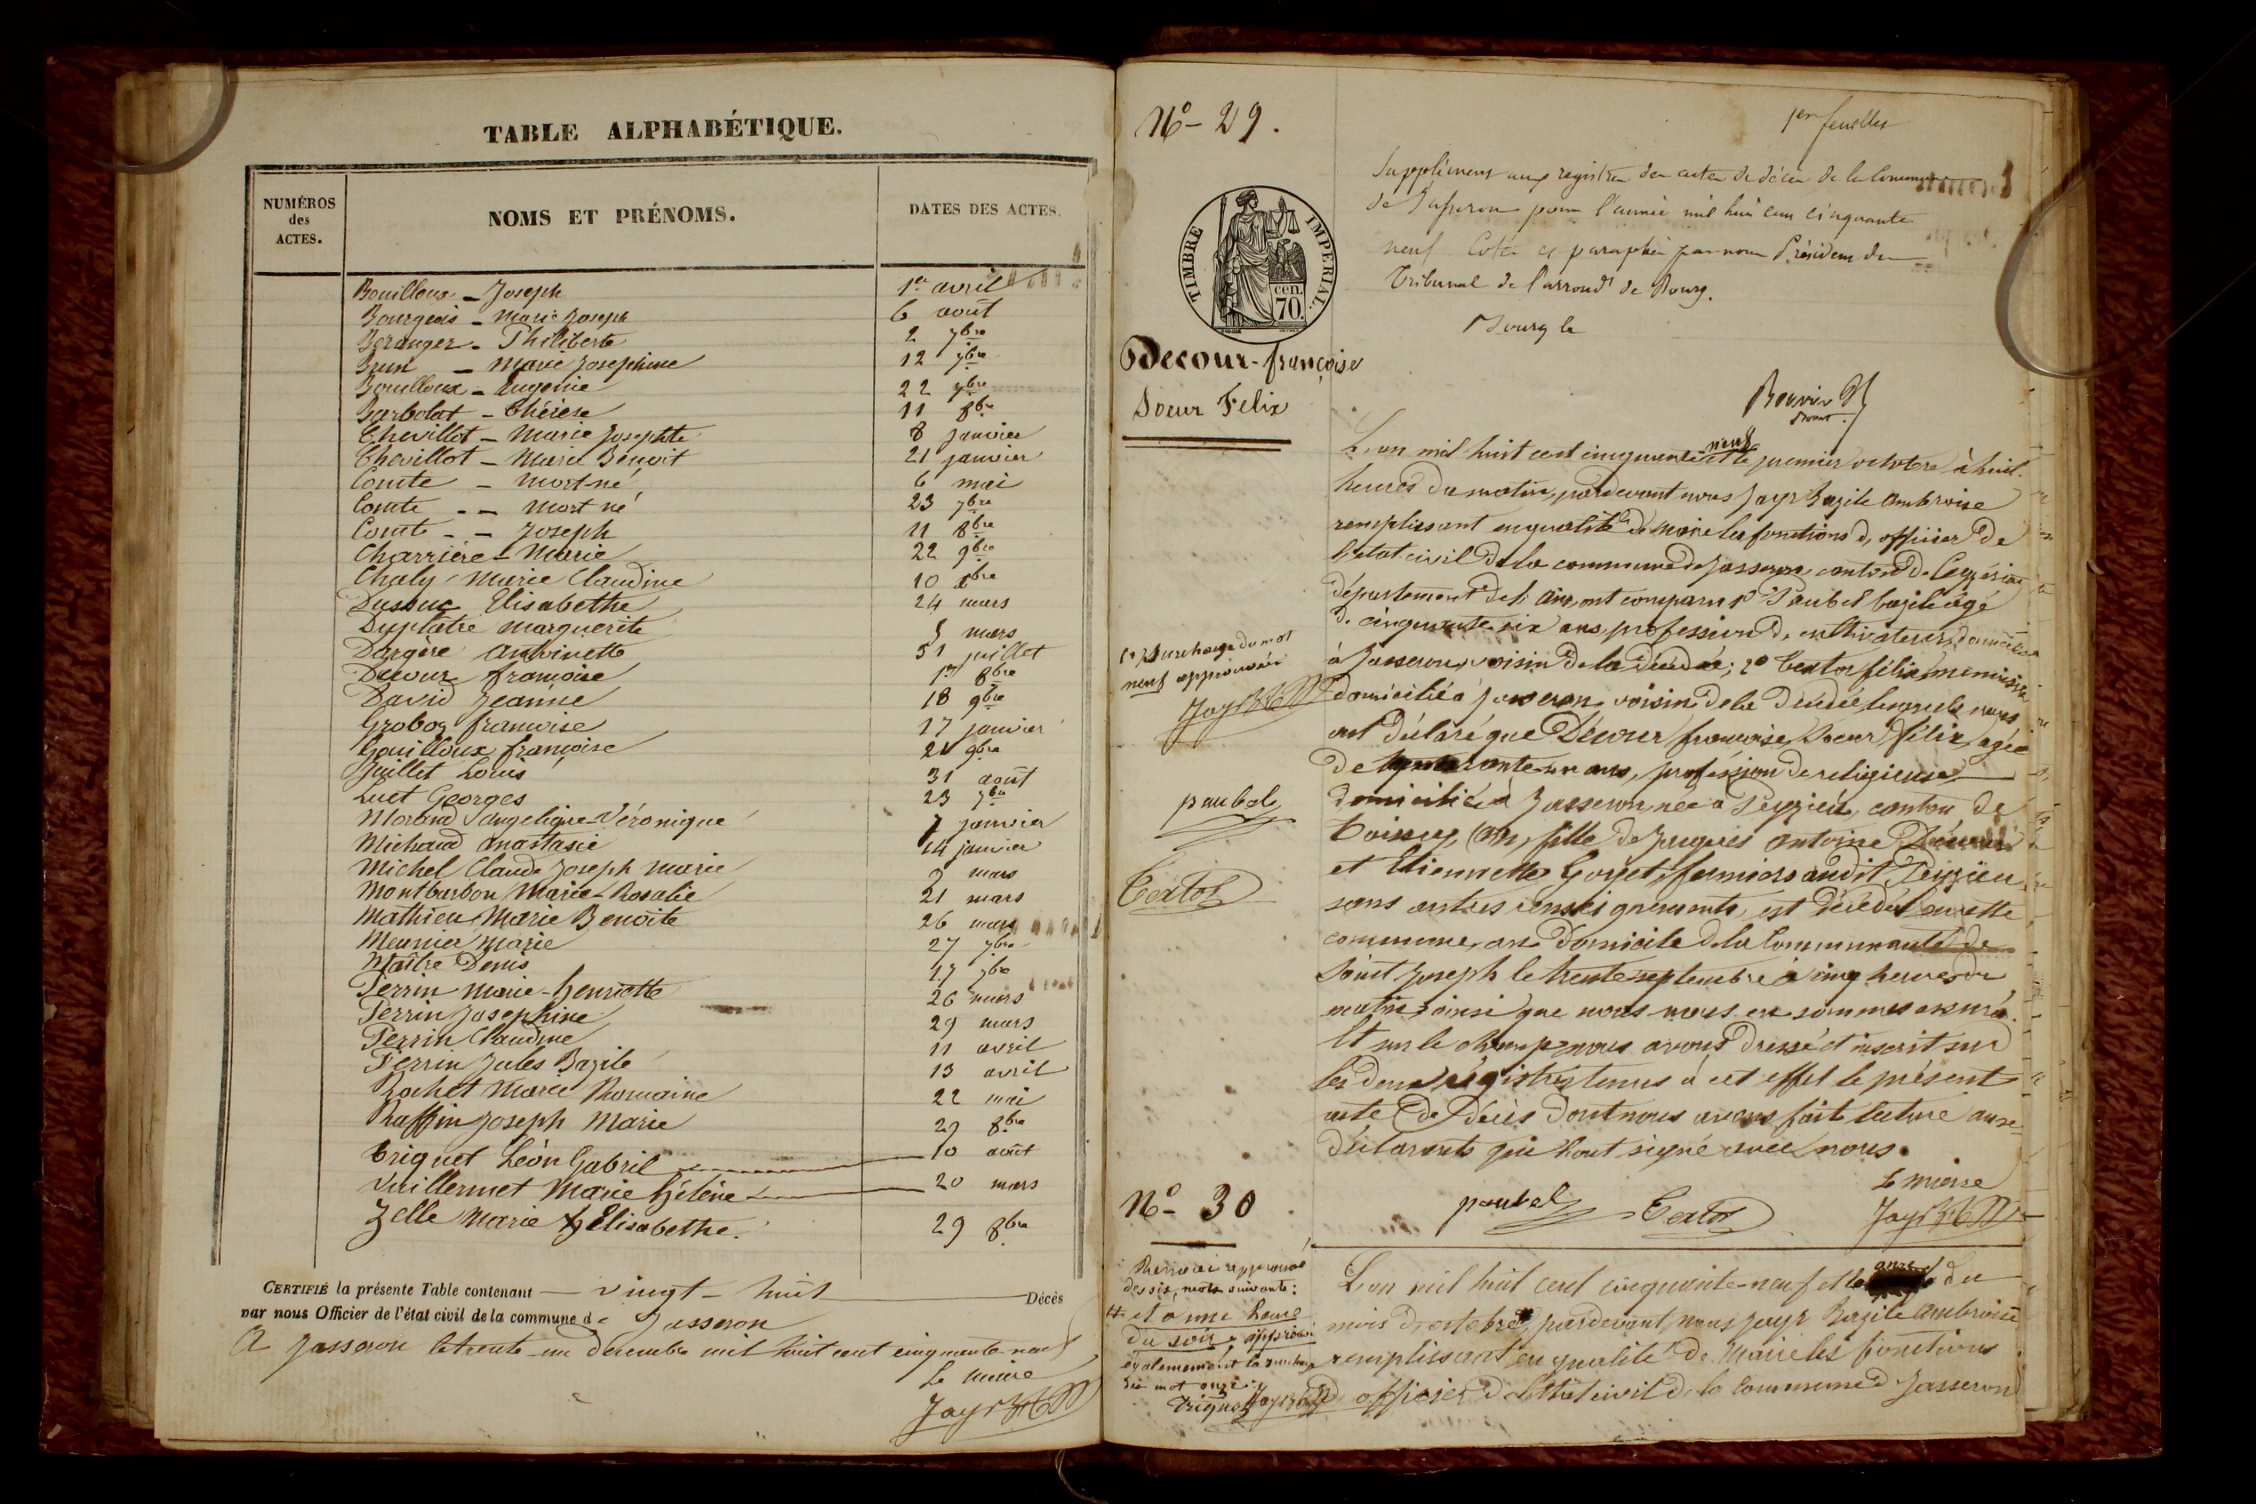 TABLE ALPHABÉTIQUE.
NUMÉROS des ACTES.
NOMS ET PRÉNOMS.
DATES DES ACTES.
Bouilloux - Joseph 1er avril
Bourgeois - Marie Joseph 6 août
Béranger - Philiberte 2 7bre
Brun - Marie Josephine 12 7bre
Bouilloux - Eugénie 22 7bre
Barbolat - Thérèse 11 8bre
Chevillot - Marie Josephte 8 janvier
Chevillot - Marie Benoit 21 janvier
Comte - Mort-né 6 mai
Comte - - Mort né 23 7bre
Comte - - Joseph 11 8bre
Charrière - Marie 22 9bre
Chaly Marie Claudine 10 xbre
Dussuc Elisabethe 24 mars
Duplatre Marguerite 5 mars
Dargère Antoinette 31 juillet
Decour françoise 1er 8bre
David Jeanne 18 9bre
Groboz françoise 17 janvier
Gouilloux françoise 21 9bre
Juillet Louis 31 août
Luet Georges 23 7bre
Morand angelique Véronique 7 janvier
Michaud anastasie 14 janvier
Michel Claude Joseph Marie 9 mars
Montbarbon Marie-Rosalie 21 mars
Mathieu Marie Benoite 26 mars
Meunier Marie 27 7bre
Maître Denis 17 9bre
Perrin Marie-henriette 26 mars
Perrin Josephine 29 mars
Perrin Claudine 11 avril
Perrin Jules Bazile 13 avril
Rochet Marie Romaine 22 mai
Ruffin Joseph Marie 29 8bre
Triquet Léon Gabril 10 août
Vuillermet Marie hélène 20 mars
Zelle Marie Elisabethe. 29 8bre
CERTIFIÉ la présente Table contenant vingt - huit Décès
par nous Officier de l'état civil de la commune de Jasseron
A Jasseron le trente-un décembre mil huit cent cinquante-neuf
Le maire
Jayr
No - 29.
1er feuillet
Supplément aux registres des actes de décès de la Commune
de Jasseron pour l'année mil huit cent cinquante
neuf Coté et paraphé par nous Président du
Tribunal de l'arrondt de Bourg.
Bourg le
TIMBRE IMPÉRIAL.
cen. 70.
Decour - françoise
Soeur Felix
L'an mil huit cent cinquante neuf et le premier octobre à huit
heures du matin, pardevant nous Jayr Bazile Ambroise
remplissant en qualité de Maire les fonctions d'officier de
l'état civil de la commune de Jasseron canton de Ceyzériat
département de l'Ain, ont comparu 1° Paubel bazile âgé
de cinquante six ans, profession de cultivateur, domicilié
à Jasseron, voisin de la Décédée; 2° Textor félix menuisier
domicilié à Jasseron voisin de la Décédée, lesquels nous
ont déclaré que Décour françoise, Soeur félix, agée
de ans, profession de religieuse
domiciliée à Jasseron née à Peyzieu, canton de
Thoissey, Ain, fille de Jacques Antoine Décour
et Etiennette Goyet, fermiers audit Peyzieu
sans autres renseignements, est décédée en cette
commune, au domicile de la Communauté de
Saint Joseph le trente septembre à cinq heures du
matin, ainsi que nous nous en sommes assuré.
Et sur le champ nous avons dressé et inscrit sur
les deux régistres tenus à cet effet le présent
acte de Décès dont nous avons fait lecture aux
déclarants qui l'ont signé avec nous.
Le maire
paubel Textor Jayr
(1) Surcharge du mot
neuf approuvée
Jayr
paubel
Textor
No - 30
Renvoi approuvé
des six mots suivants:
et a une heure
du soir, approuvé
également la surcharge
du mot onze
Triquet Jayr
L'an mil huit cent cinquante-neuf et le onze du
mois d'octobre, pardevant nous Jayr Bazile ambroise
remplissant en qualité de Maire les fonctions
d'officier de l'état civil de la commune de Jasseron